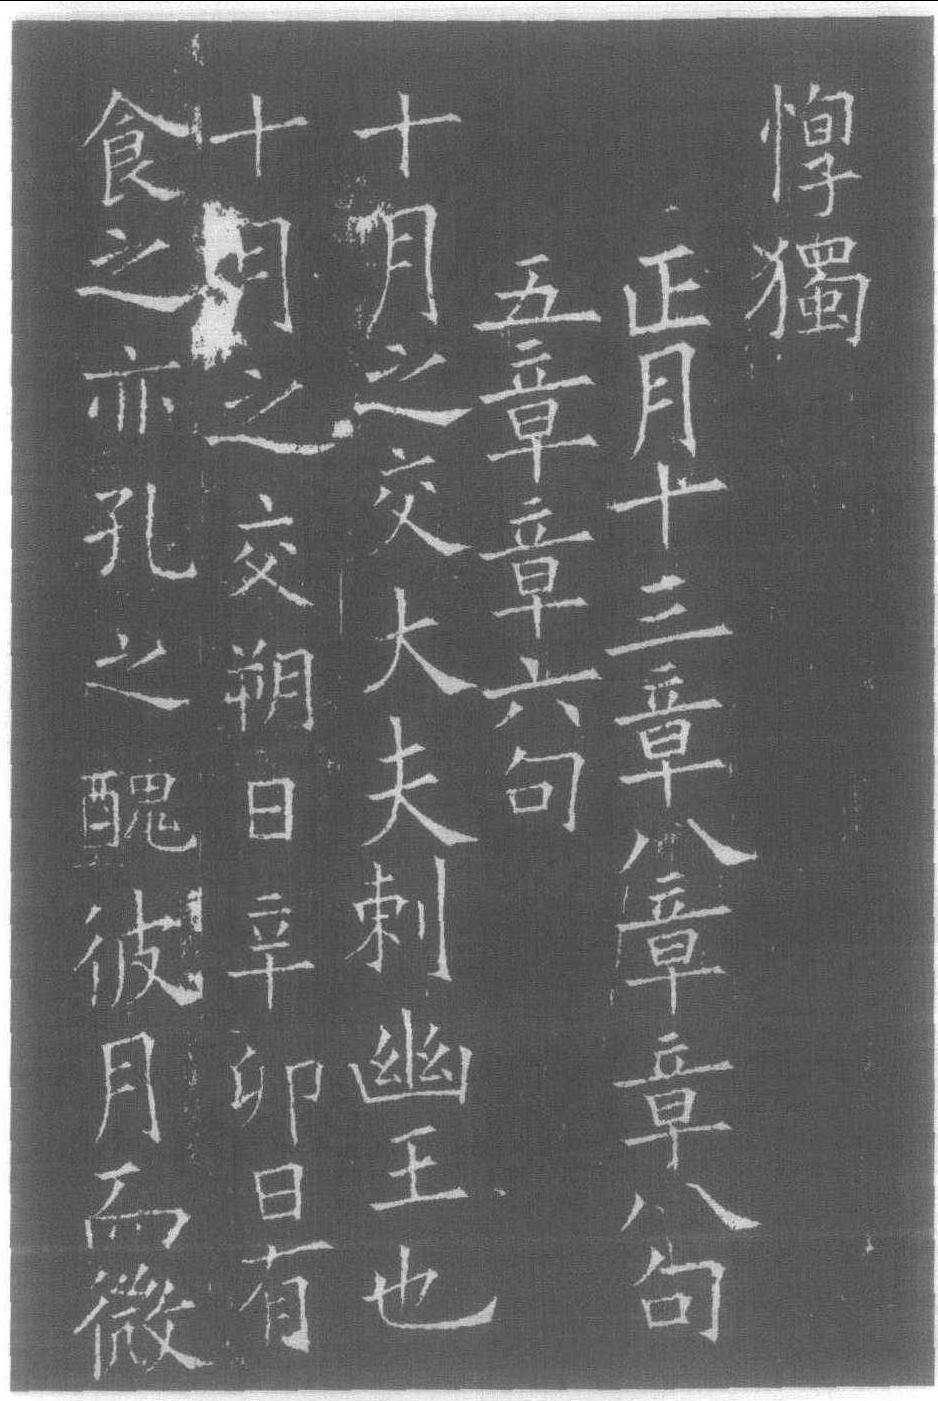 惸獨
正月十三章八章章八句
五章章六句
十月之交大夫刺幽王也
十月之交朔日辛卯日有
食之亦孔之醜彼月而微